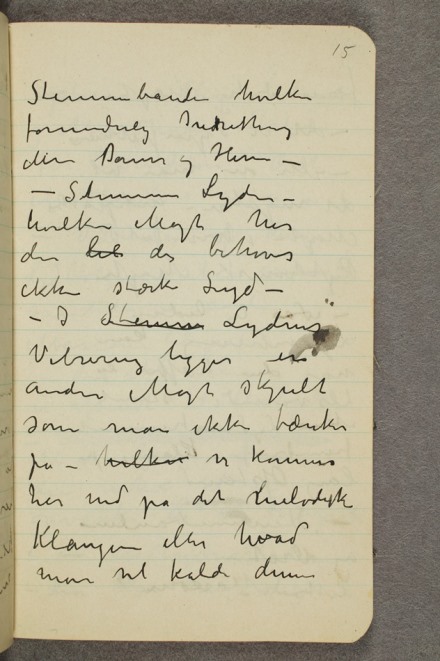 15
Stemmebaandet hvilken
forunderlig Indretning
den Danner og Hæver —
— Stemmens Lyden —
hvilken Magt har
den det behøves
ikke stærk Lyd —
— I Stemme Lydens
Vibrering ligger en
anden Magt skjult
som man ikke tænker
paa — hvilken vi kommer
her ind paa det melodiske
Klangen eller hvad
man vil kalde denne